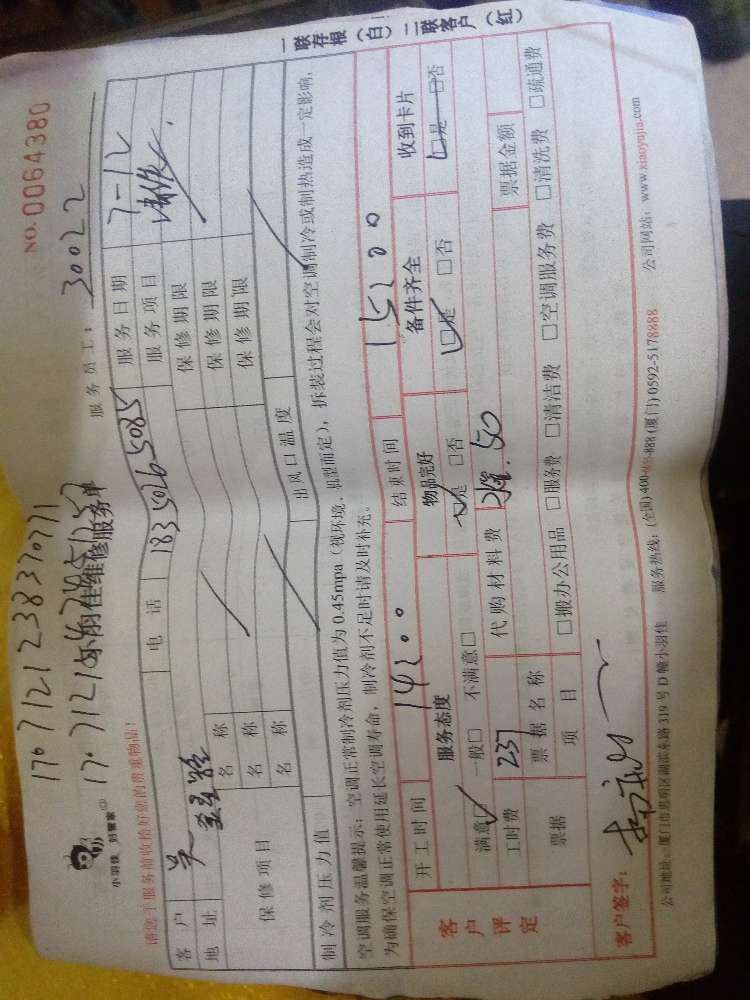 一联存根（白） 二联客户（红）
NO. 0064380
17071212383707​71
小羽佳 好管家
小羽佳维修服务单
服务员工： 30022
请您于服务前收拾好您的贵重物品！
客户 吴 电话 183 5026 5085 服务日期 7-12
地址 服务项目
保修项目 名称 保修期限
名称 保修期限
名称 保修期限
制冷剂压力值 出风口温度
空调服务温馨提示：空调正常制冷剂压力值为 0.45mpa（视环境、机型而定），拆装过程会对空调制冷或制热造成一定影响，
为确保空调正常使用延长空调寿命，制冷剂不足时请及时补充。
开工时间 14:00 结束时间 15:00
客户评定 服务态度 物品完好 备件齐全 收到卡片
满意□ 一般□ 不满意□ □是 □否 □是 □否 □是 □否
工时费 237 代购材料费 .50
票据 票据名称 票据金额
项目 □搬办公用品 □服务费 □清洁费 □空调服务费 □清洗费 □疏通费
客户签字：
公司地址：厦门市思明区湖滨东路 319 号 D 幢小羽佳 服务热线：(全国) 400-888 (厦门) 0592-5178888 公司网站：www.xiaoyujia.com